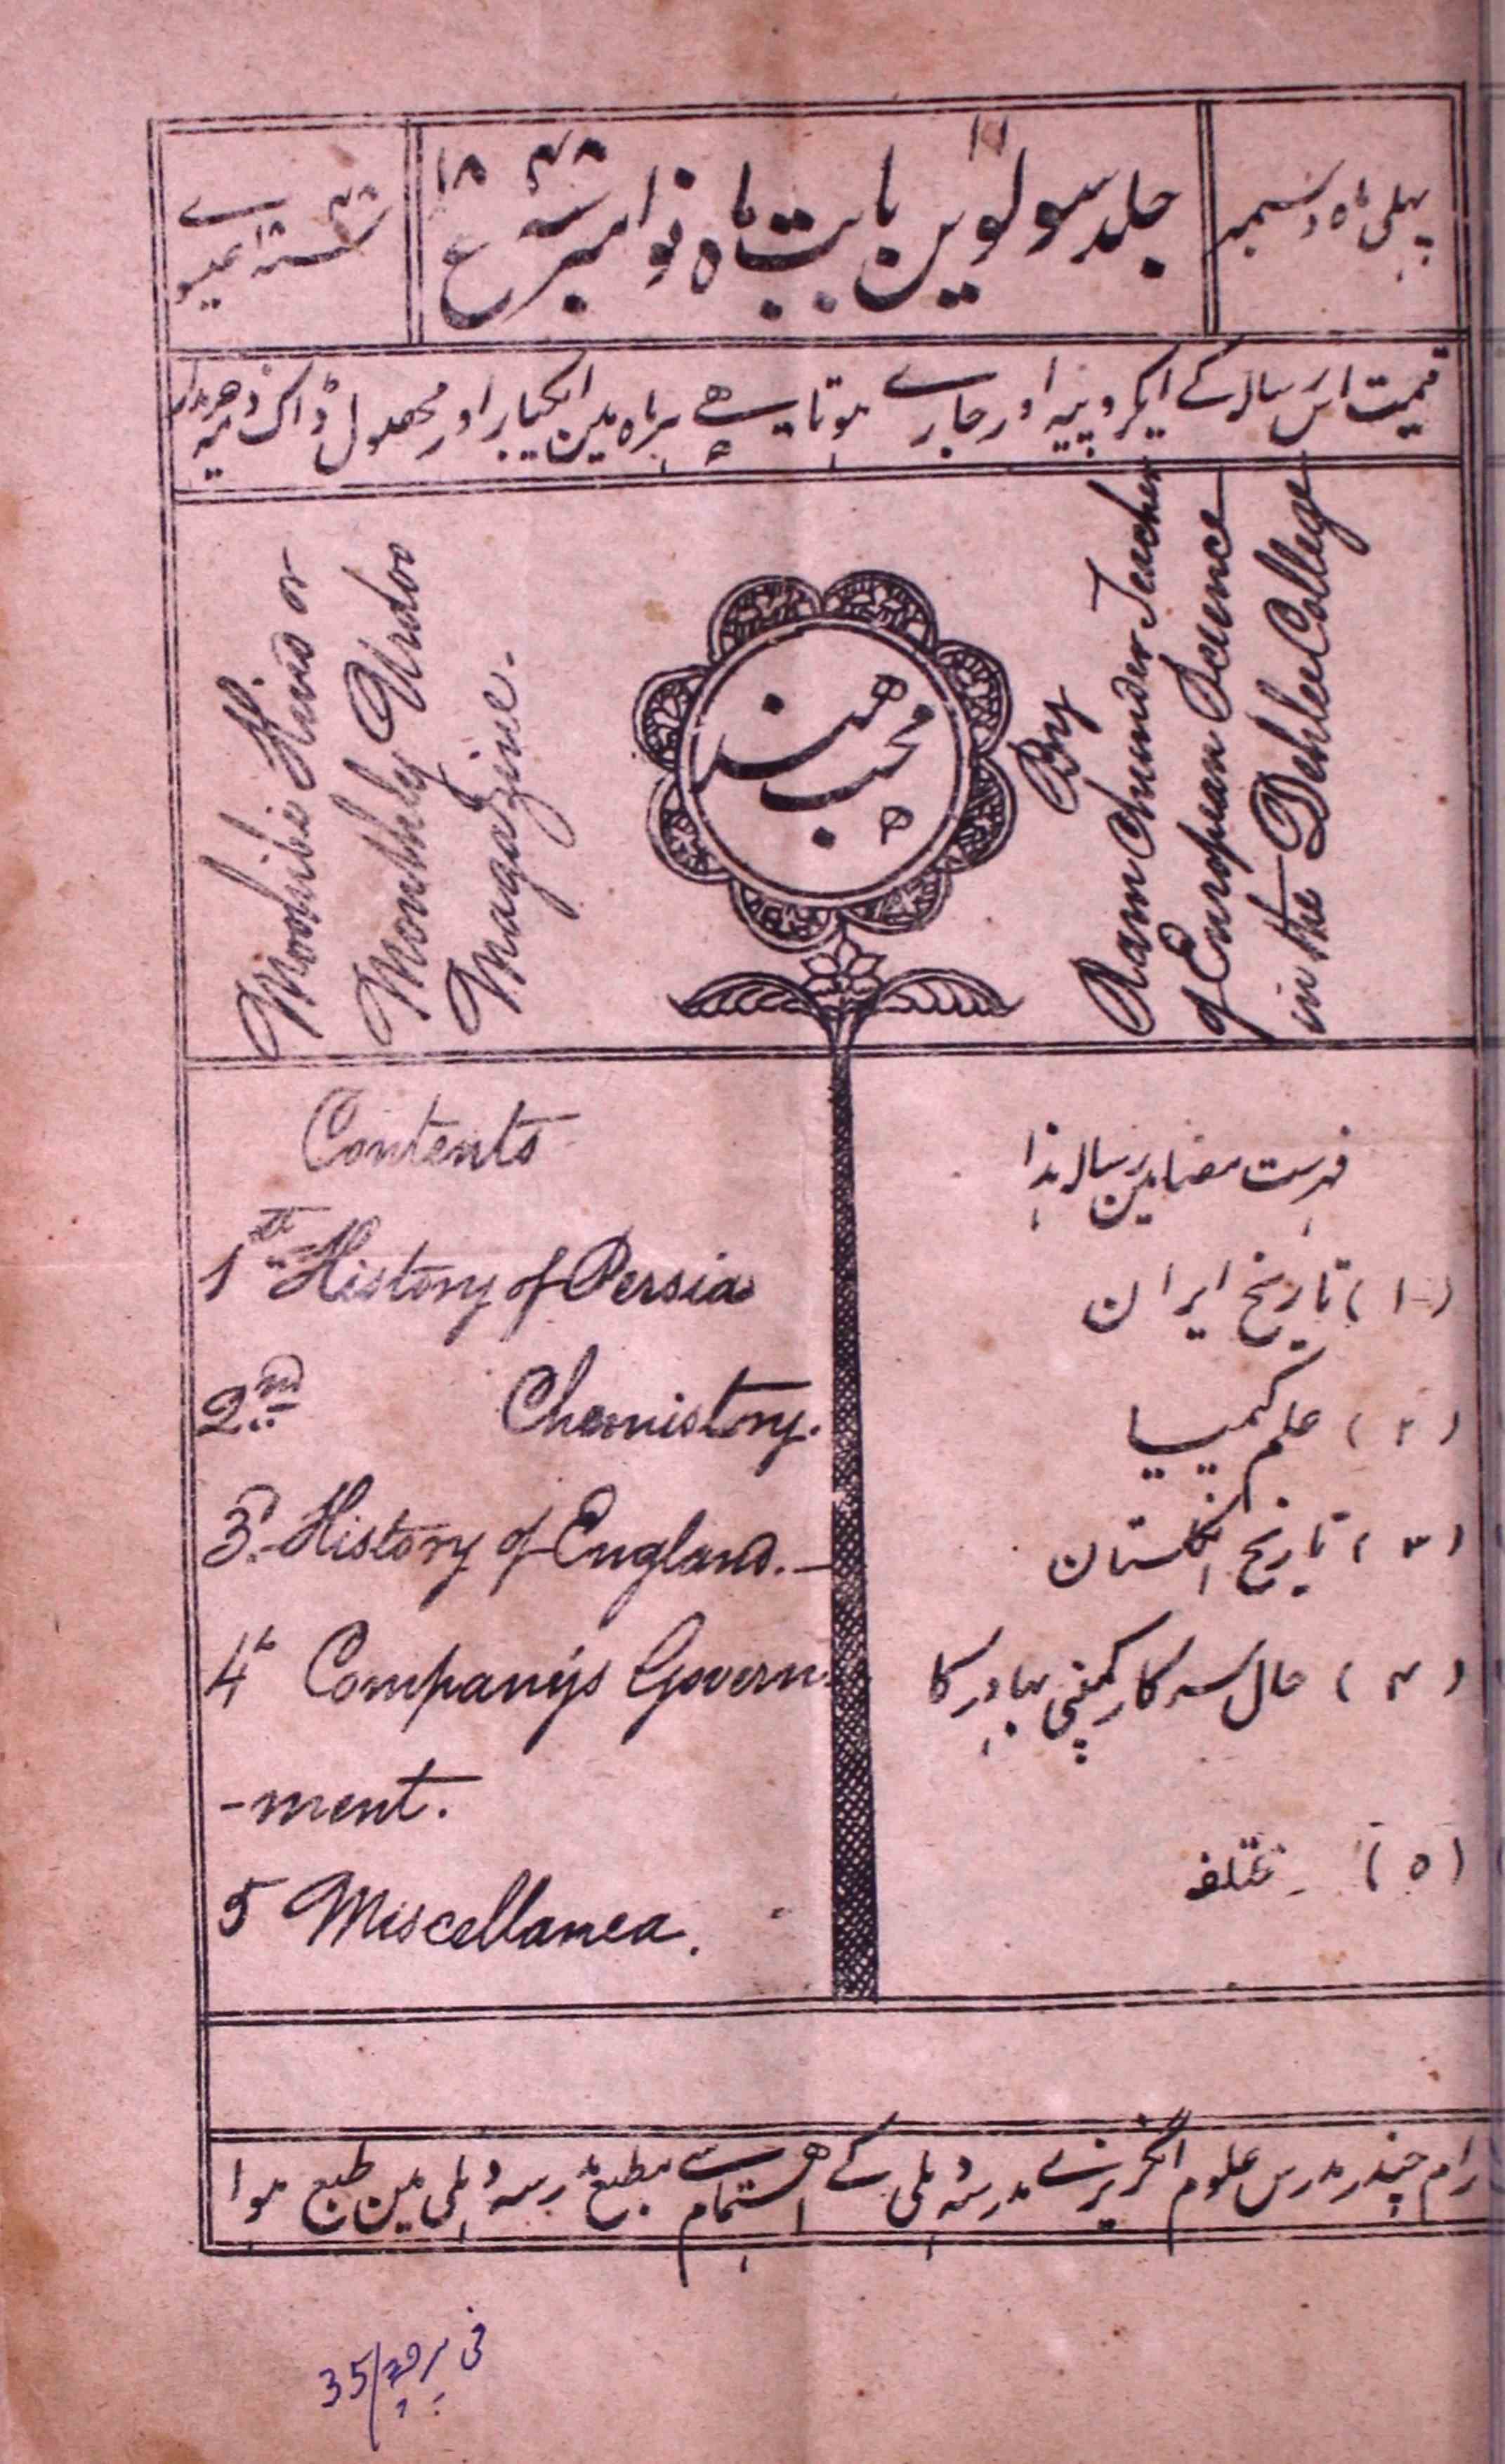 پہلی ماہ دسمبر
جلد سولوین بابت ماہ نوامبر سنہ ۱۸۴۸ ع
سنہ ۱۸۴۸ عیسوے
قیمت اس رسالہ کے ایکروپیہ اور جارے ہوتا ہے ہر ماہ مین ایکبار اور محصول ڈاک ذمہ
Moohibi Hind or
Monthly Urdoo
Magazine.
محب هند
By
Ram Chunder Teacher
of European Science
in the Dehlee College
Contents
1th History of Persia
2nd Chemistry.
3d History of England.
4th Company's Govern
-ment.
5 Miscellanea.
فہرست مضامین رسالہ ہذا
(۱) تاریخ ایران
(۲) علم کیمیا
(۳) تاریخ انگلستان
(۴) حال سرکار کمپنی بہادر کا
(۵) مختلفہ
رام چندر مدرس علوم انگریزے مدرسہ دہلی کے اہتمام سے مطبع مدرسہ دہلی مین طبع ہوا
35/